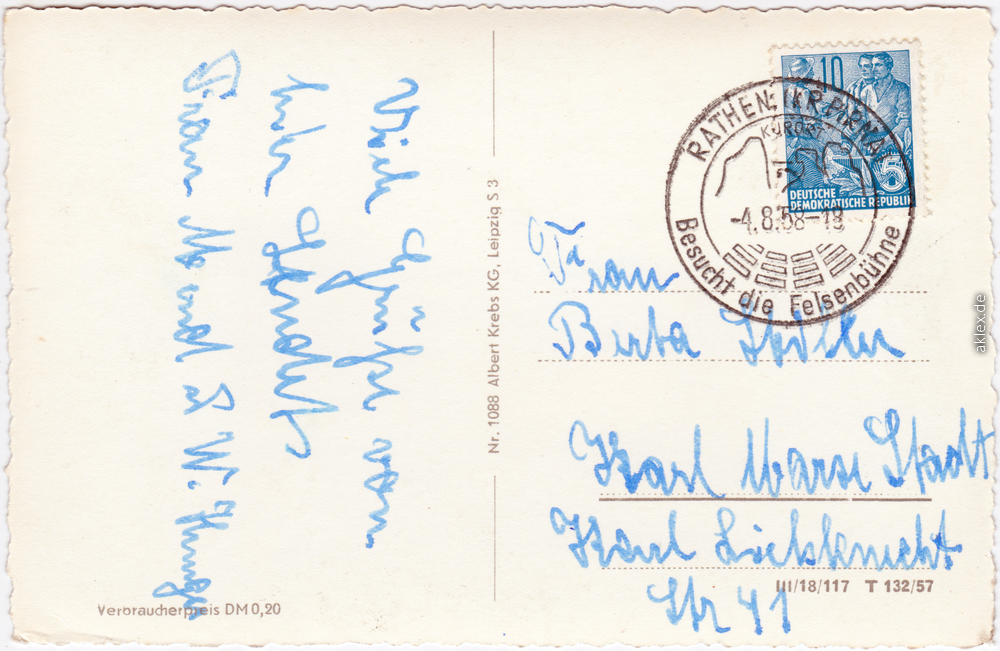 Viele Grüße von
der
Frau M und L W.
Nr. 1088 Albert Krebs KG, Leipzig S 3
Verbraucherpreis DM 0,20
10
5
DEUTSCHE
DEMOKRATISCHE REPUBLIK
RATHEN (KR. PIRNA)
KURORT
-4.8.58-18
Besucht die Felsenbühne
Frau
Berta
Karl Marx Stadt
Karl Liebknecht
Str 41
III/18/117 T 132/57
aklex.de